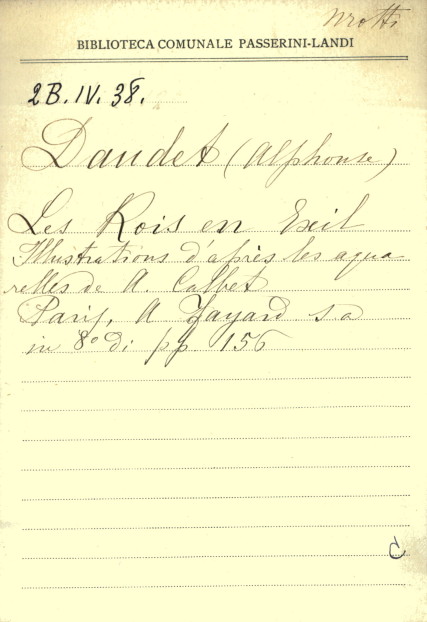 BIBLIOTECA COMUNALE PASSERINI-LANDI
2B.IV.38.
Daudet (Alphonse)
Les Rois en Exil
Illustrations d'après les aqua
relles de A. Calbet
Paris, A Fayard s a
in 8º di pp 156
C